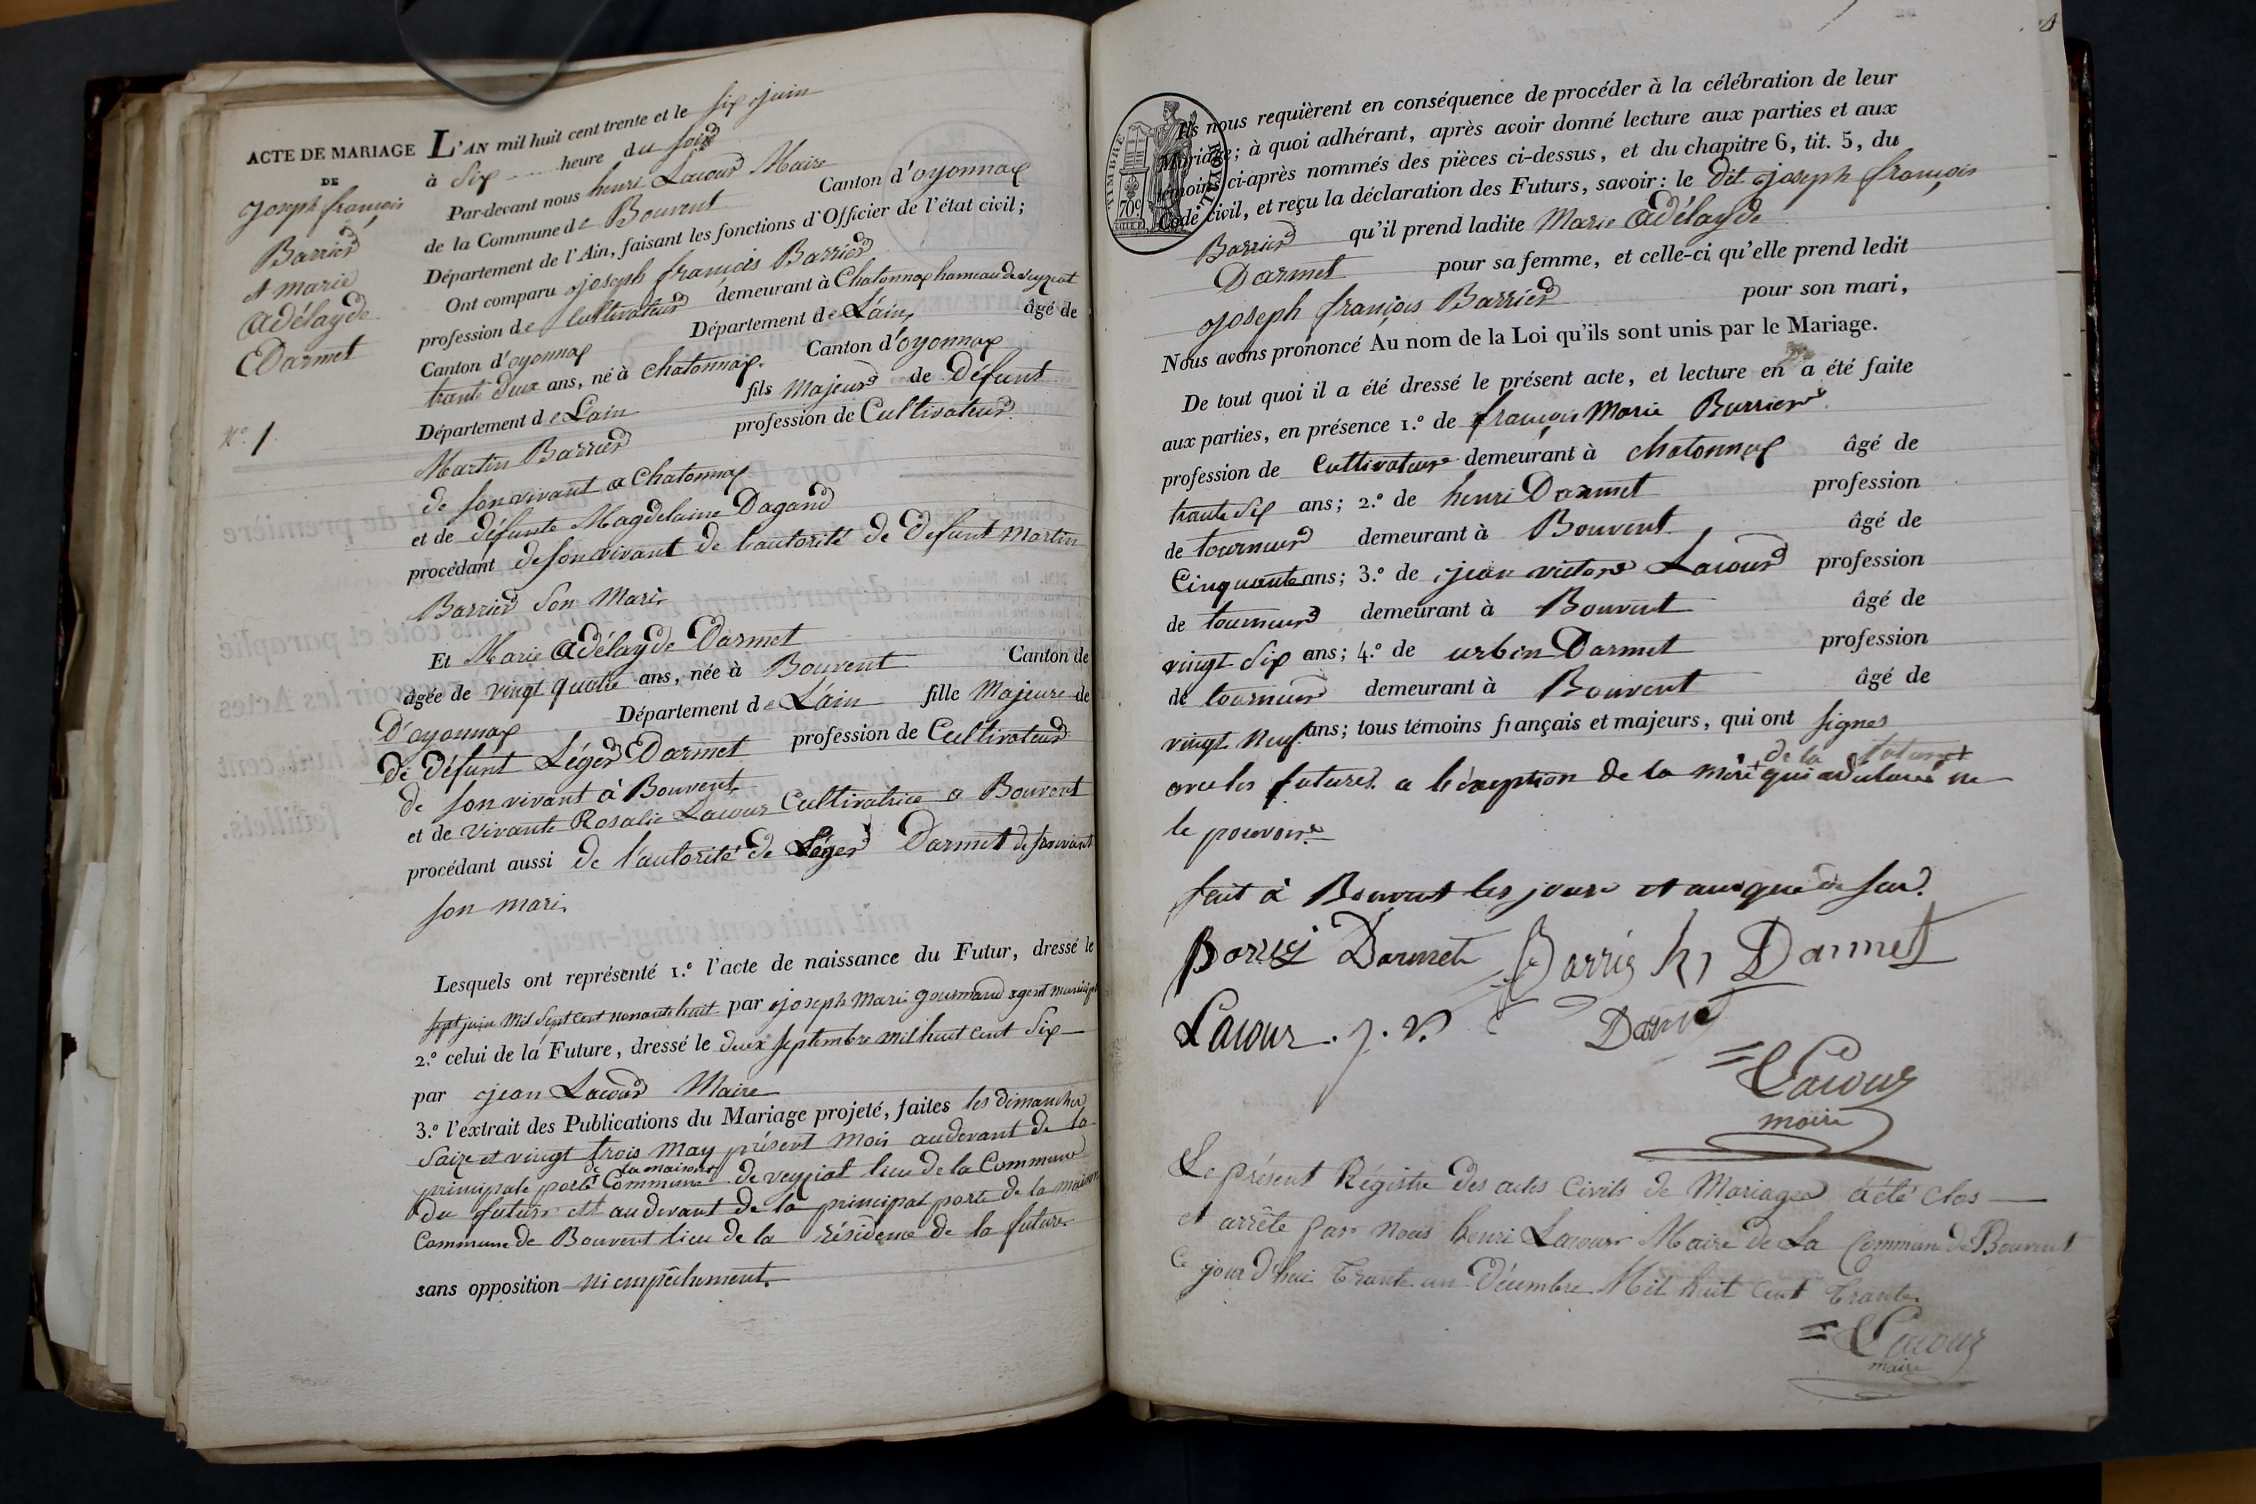 ACTE DE MARIAGE
DE
Joseph françois
Barrier
et marie
Adélayde
Darmet
N.o 1
L'AN mil huit cent trente et le six juin
à Six heure du soir
Par-devant nous henri Lacour Maire
de la Commune de Bouvent Canton d'oyonnax
Département de l'Ain, faisant les fonctions d'Officier de l'état civil;
Ont comparu joseph françois Barrier
profession de Cultivateur demeurant à Chatonnax hameau de veyziat
Canton d'oyonnax Département de L'ain, âgé de
trante deux ans, né à Chatonnax. Canton d'oyonnax
Département de Lain fils Majeur de Défunt
Martin Barrier profession de Cultivateur
de son vivant a Chatonnax
et de défunte Magdelaine Dagand
procédant de son vivant de l'autorité de Defunt Martin
Barrier Son Mari
Et Marie Adélayde Darmet
âgée de vingt quatre ans, née à Bouvent Canton de
D'oyonnax Département de L'ain fille Majeure de
de défunt Léger Darmet profession de Cultivateur
de son vivant à Bouvent
et de vivante Rosalie Lacour Cultivatrice a Bouvent
procédant aussi de l'autorité de Léger Darmet de son vivant
son mari.
Lesquels ont représenté 1.o l'acte de naissance du Futur, dressé le
sept juin Mil Sept cent nonante huit par joseph Marie gourmand agent municipal
2.o celui de la Future, dressé le deux septembre mil huit cent Six
par jean Lacour Maire
3.o l'extrait des Publications du Mariage projeté, faites les dimanches
Saize et vingt trois May présent mois audevant de la
principale porte de la maison Commune de veyziat lieu de la Commune
du futur et audevant de la principal porte de la maison
Commune de Bouvent lieu de la résidence de la future
sans opposition ni empêchement.
TIMBRE ROYAL
70c
Ils nous requièrent en conséquence de procéder à la célébration de leur
Mariage; à quoi adhérant, après avoir donné lecture aux parties et aux
témoins ci-après nommés des pièces ci-dessus, et du chapitre 6, tit. 5, du
Code civil, et reçu la déclaration des Futurs, savoir: le dit joseph françois
Barrier qu'il prend ladite Marie Adélayde
Darmet pour sa femme, et celle-ci qu'elle prend ledit
joseph françois Barrier pour son mari,
Nous avons prononcé Au nom de la Loi qu'ils sont unis par le Mariage.
De tout quoi il a été dressé le présent acte, et lecture en a été faite
aux parties, en présence 1.o de françois Marie Barrier
profession de Cultivateur demeurant à chatonnax âgé de
trante Six ans; 2.o de henri Darmet profession
de tourneur demeurant à Bouvent âgé de
Cinquante ans; 3.o de jean victor Lacour profession
de tourneur demeurant à Bouvent âgé de
vingt Six ans; 4.o de urbin Darmet profession
de tourneur demeurant à Bouvent âgé de
vingt Neuf ans; tous témoins français et majeurs, qui ont signes
avec les futures a l'éxeption de la mère de la future qui a déclaré ne
le pouvoir
fait à Bouvent les jour et an que de sur.
Barrier Darmet Barrier h, Darmet
Lacour. J. V. Darmet
Lacour
maire
Le présent Régistre des actes Civils de Mariages a été clos
et arrêté par Nous henri Lacour Maire de La Commune de Bouvent
Ce jour d'hui trante un Décembre Mil huit Cent trante
Lacour
maire